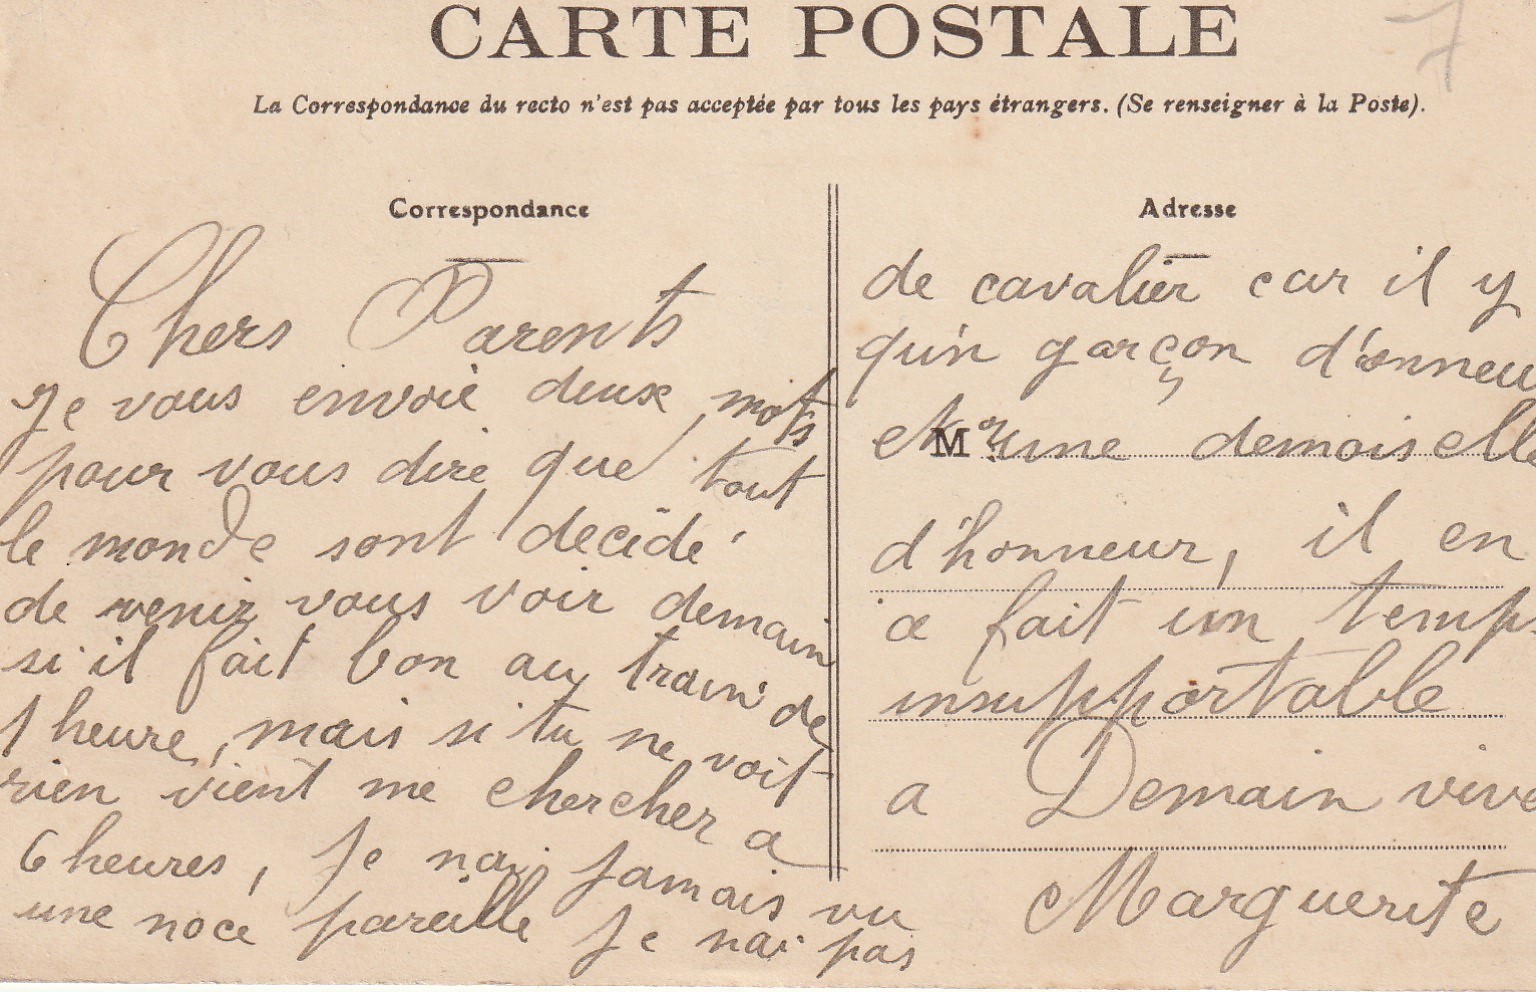 7
CARTE POSTALE
La Correspondance du recto n'est pas acceptée par tous les pays étrangers. (Se renseigner à la Poste).
Correspondance
Chers Parents
Je vous envoie deux mots
pour vous dire que tout
le monde sont decidé
de venir vous voir demain
si il fait bon au train de
1 heure, mais si tu ne voit
rien vient me chercher a
6 heures, Je nai jamais vu
une noce pareille Je nai pas
Adresse
de cavalier car il y
qu'n garçon d'onneu
et une demoiselle
M
d'honneur, il en
a fait un temp
insupportable
a Demain vive
Marguerite